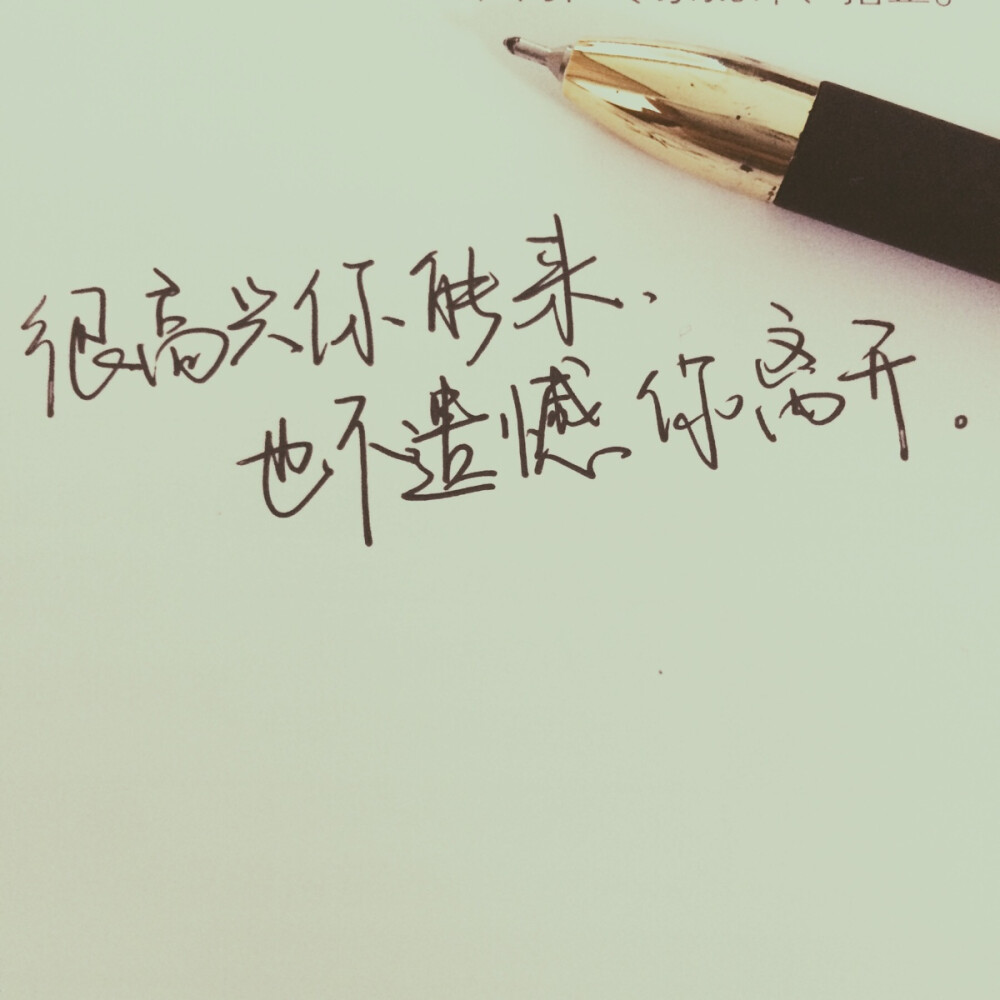 很高兴你能来、
也不遗憾你离开。